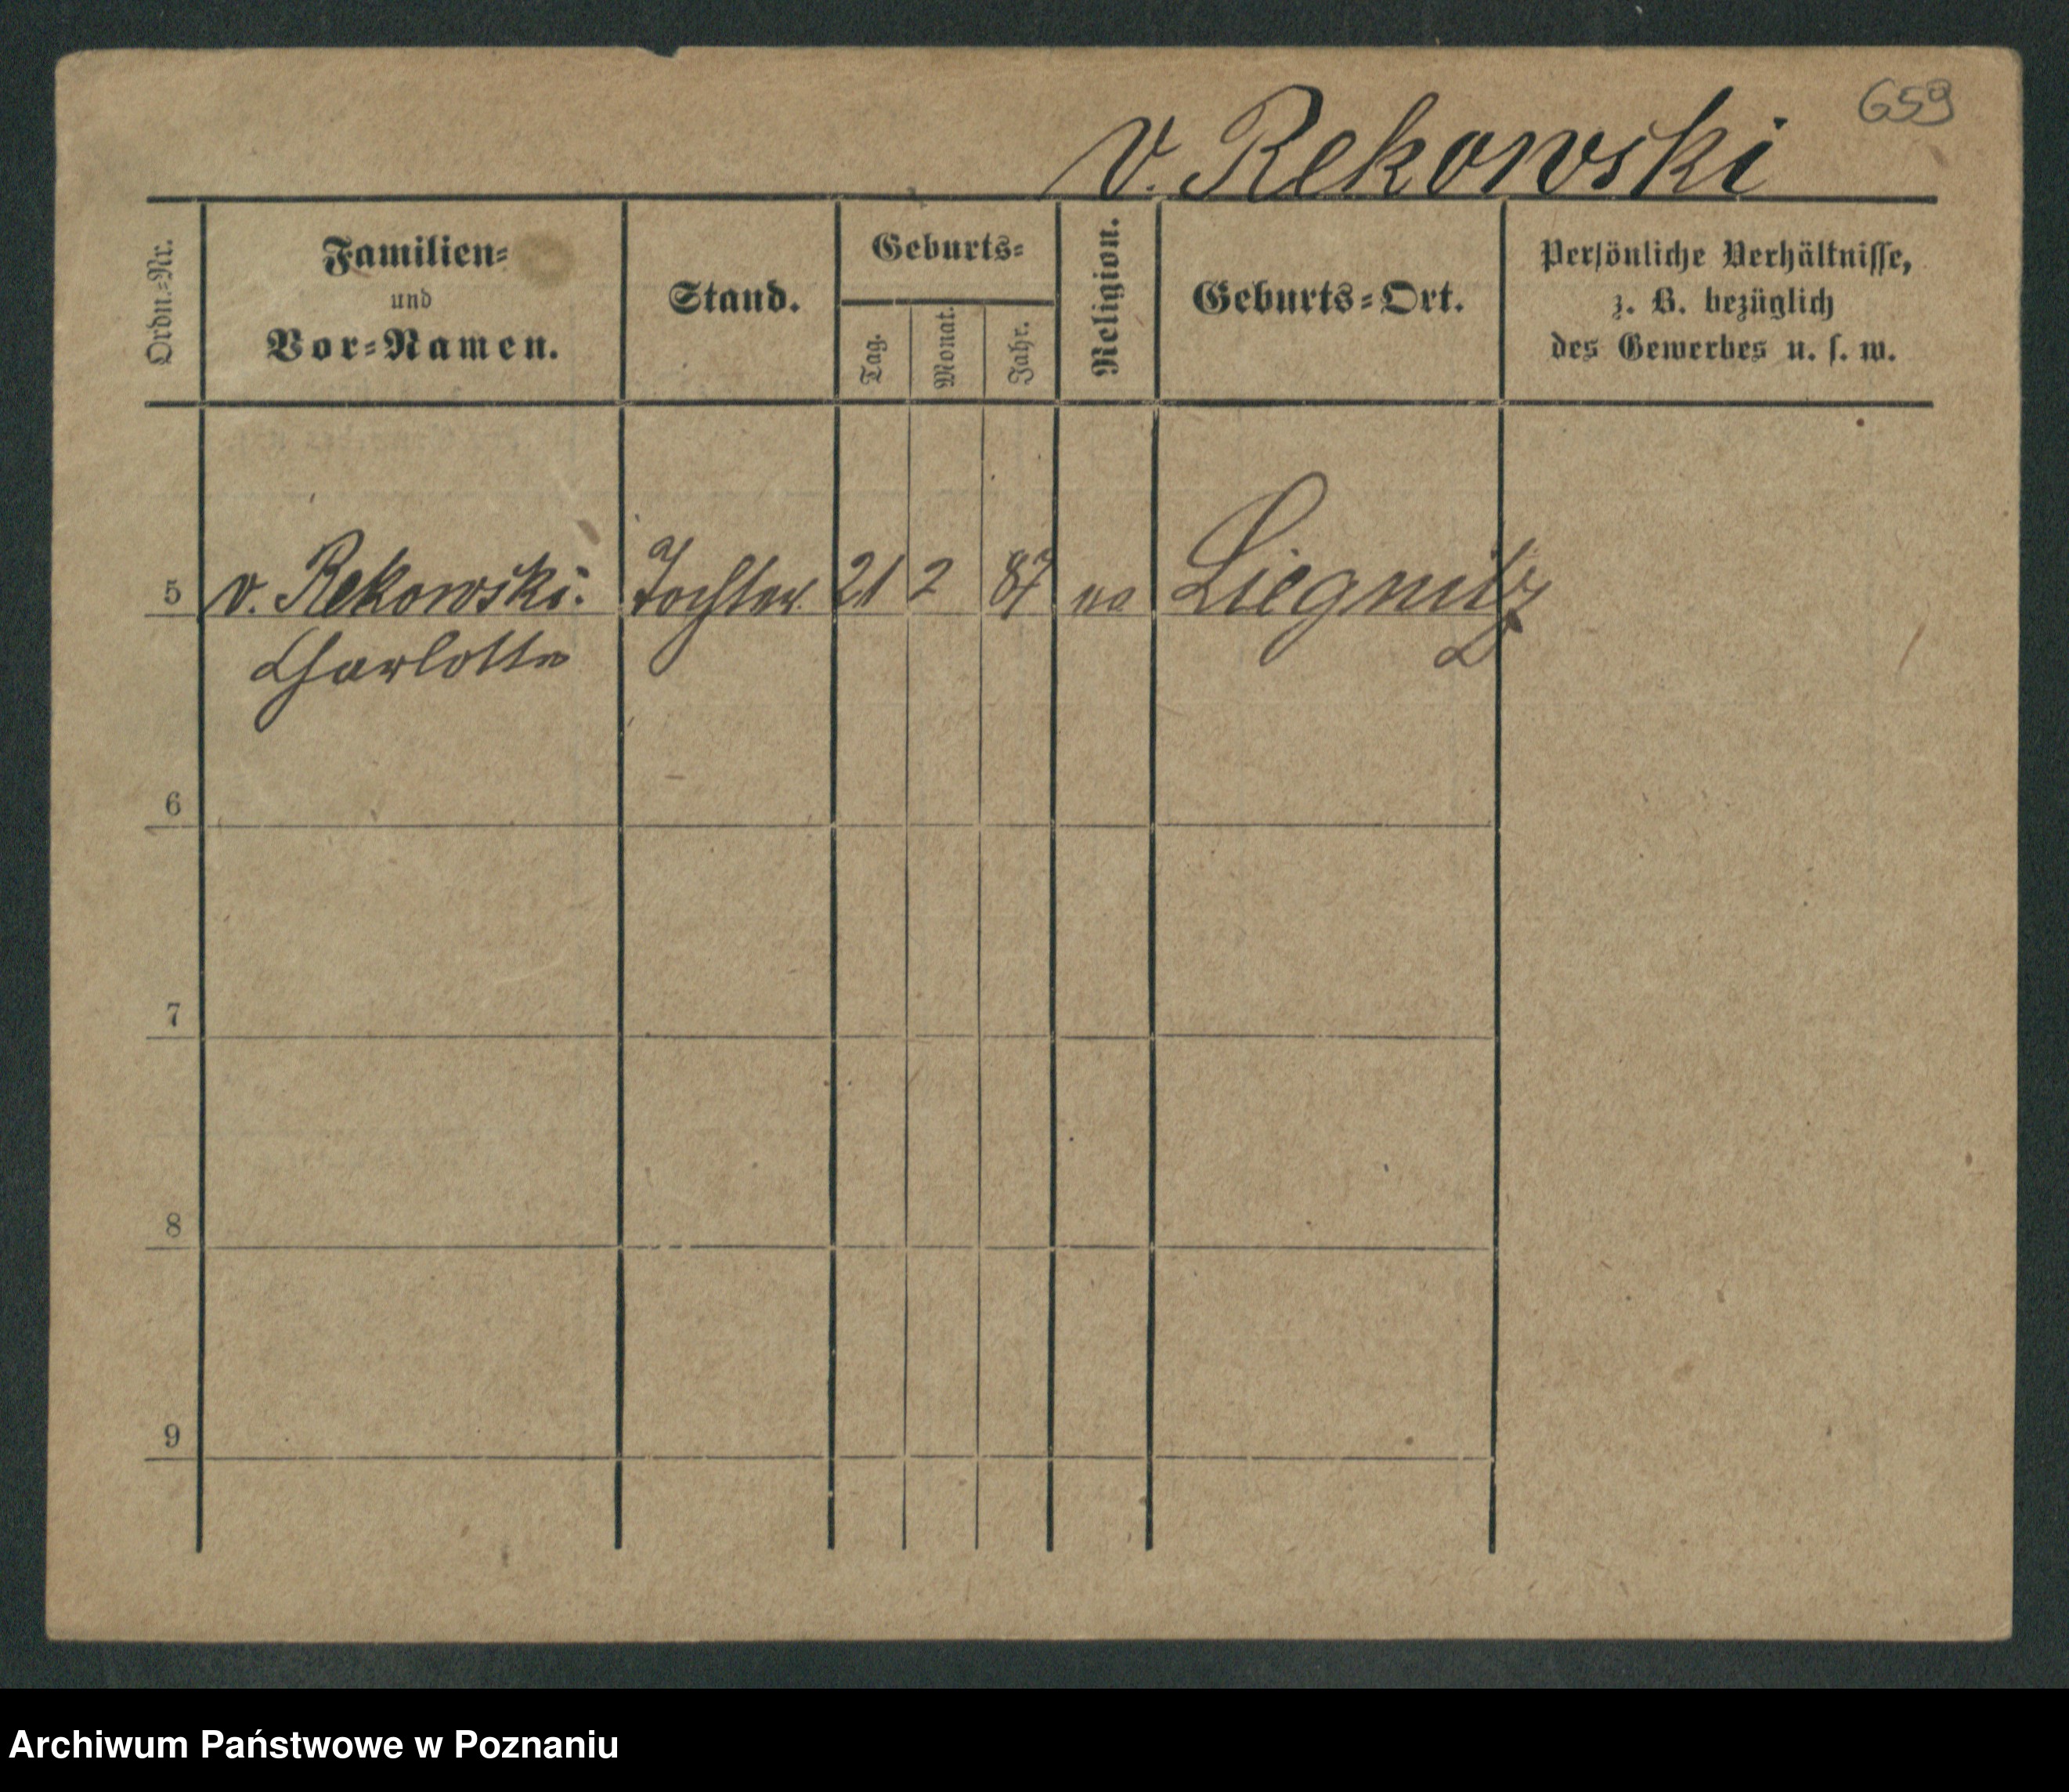 659
v. Rekowski
Ordn.=Nr.
Familien=
und
Vor=Namen.
Stand.
Geburts=
Tag.
Monat.
Jahr.
Religion.
Geburts=Ort.
Persönliche Verhältnisse,
z. B. bezüglich
des Gewerbes u. s. w.
5 v. Rekowski. Tochter 21 2 87 Liegnitz
Charlotte
6
7
8
9
Archiwum Państwowe w Poznaniu